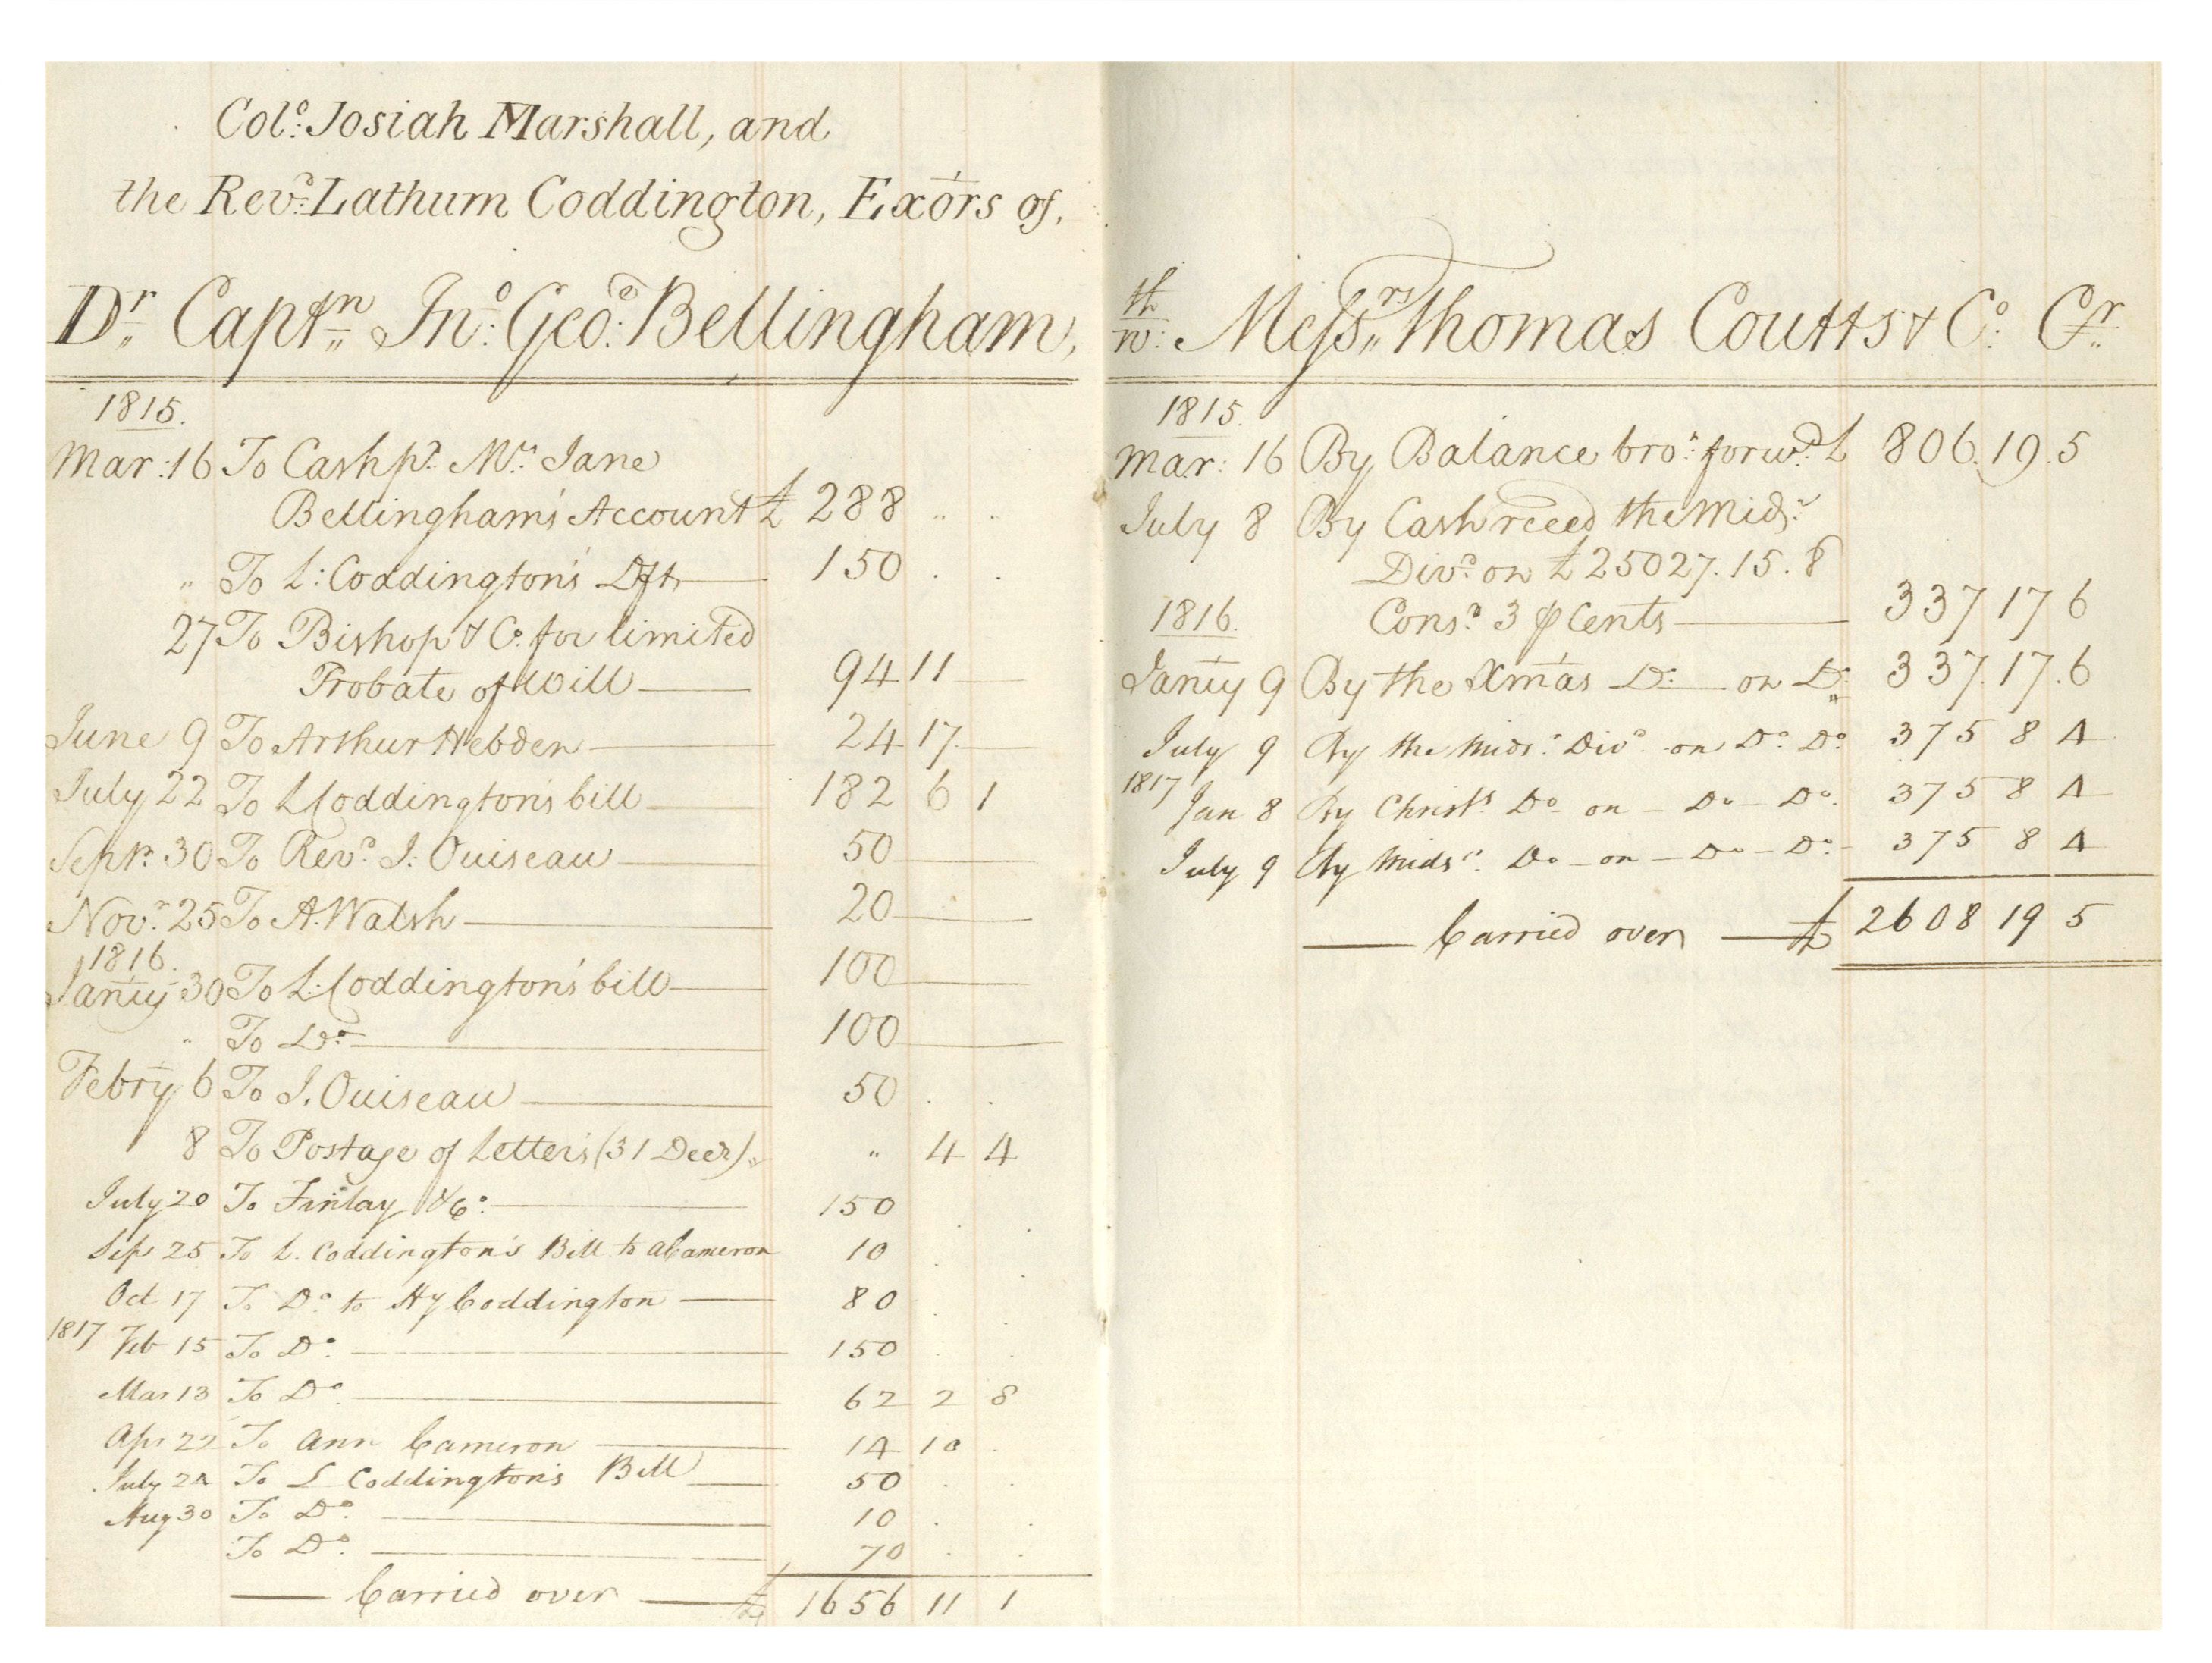 Colo: Josiah Marshall, and
the Revd: Lathum Coddington, Exors of,
Dr Captn Jno: Geo: Bellingham,
1815.
Mar: 16 To Cash pd Mrs Jane
Bellingham's Account £ 288 " .
" To L: Coddington's Dft 150 . .
27 To Bishop & Co. for limited
Probate of Will 94 11
June 9 To Arthur Hebden 24 17
July 22 To L Coddington's bill 182 6 1
Septr. 30 To Revd. J: Ouiseau 50
Novr. 25 To A. Walsh 20
1816.
Janry 30 To L: Coddington's bill 100
" To Do 100
Febry 6 To J. Ouiseau 50 . .
8 To Postage of Letters (31 Decr) " " 4 4
July 20 To Finlay & Co: 150 . .
Sep 25 To L. Coddington's Bill to A Cameron 10 . .
Oct 17 To Do to Hy Coddington 80 . .
1817 Feb 15 To Do. 150 . .
Mar 13 To Do. 62 2 8
Apr 22 To Ann Cameron 14 10 .
July 24 To L Coddington's Bill 50 . .
Aug 30 To Do. 10 . .
To Do. 70 . .
Carried over £ 1656 11 1
th
w: Messrs Thomas Coutts & Co: Cr
1815.
Mar: 16 By Balance bro: forwd: £ 806. 19. 5
July 8 By Cash recd the Midsr
Divd on £25027. 15. 8
1816. Consd 3 ⅌ Cents 337 17 6
Janry 9 By the Xmas Do: on Do: 337. 17. 6
July 9 By the Midsr Divd on Do. Do. 375 8 4
1817 Jan 8 By Christs Do on - Do - Do. 375 8 4
July 9 By Midsr. Do - on - Do - Do. 375 8 4
Carried over £ 2608 19 5